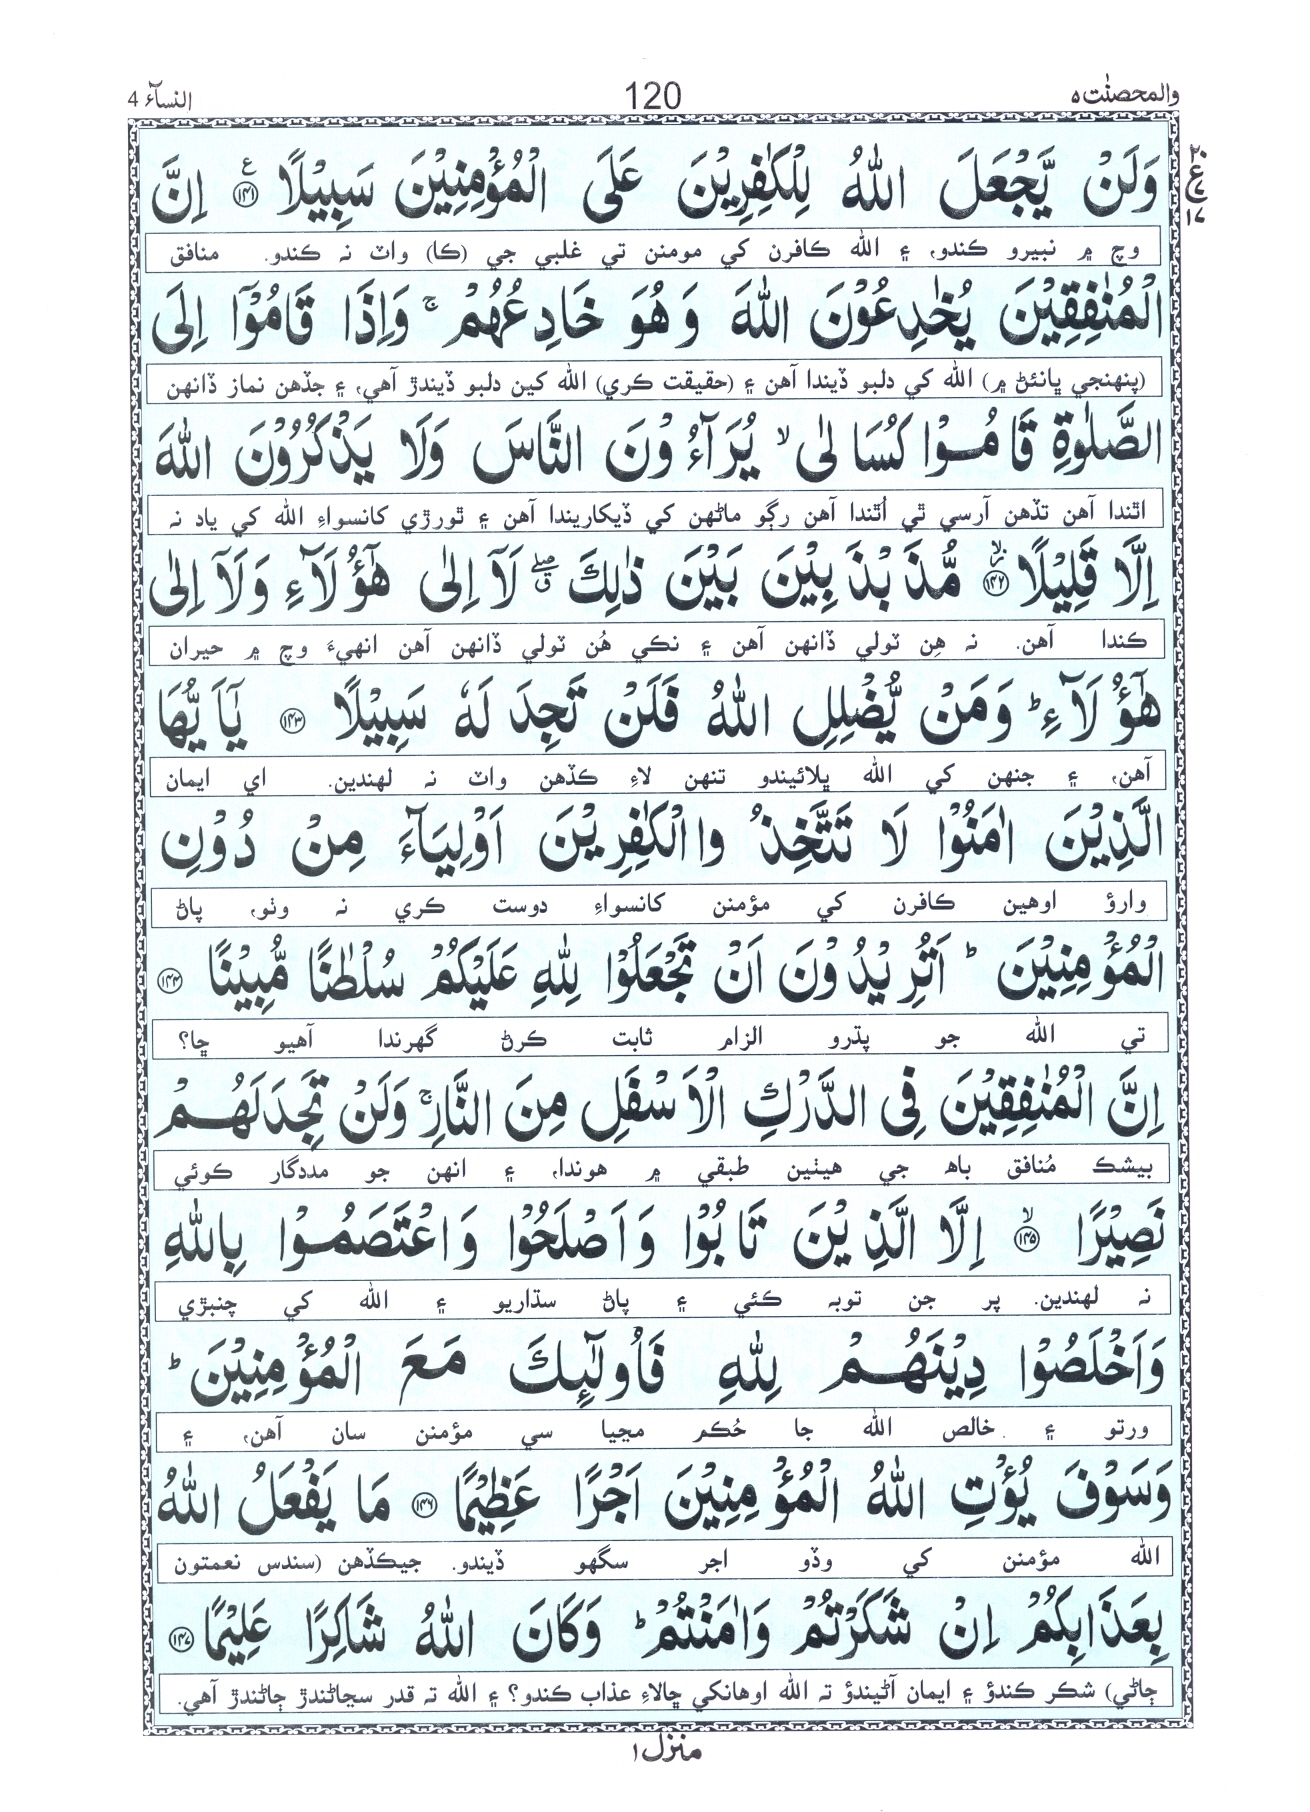 والمحصنٰت ٥ 120 النسآء 4
ع ١٧
وَلَنْ يَّجْعَلَ اللهُ لِلْكٰفِرِيْنَ عَلَى الْمُؤْمِنِيْنَ سَبِيْلًا ﴿۱۴۱﴾ ع اِنَّ
وچ ۾ نبيرو ڪندو، ۽ الله ڪافرن کي مومنن تي غلبي جي (ڪا) واٽ نہ ڪندو. منافق
الْمُنٰفِقِيْنَ يُخٰدِعُوْنَ اللهَ وَهُوَ خَادِعُهُمْ ۚ وَاِذَا قَامُوْٓا اِلَى
(پنهنجي ڀانئڻ ۾) الله کي دلبو ڏيندا آهن ۽ (حقيقت ڪري) الله کين دلبو ڏيندڙ آهي، ۽ جڏهن نماز ڏانهن
الصَّلٰوةِ قَامُوْا كُسَالٰى ۙ يُرَآءُوْنَ النَّاسَ وَلَا يَذْكُرُوْنَ اللهَ
اٿندا آهن تڏهن آرسي ٿي اُٿندا آهن رڳو ماڻهن کي ڏيکاريندا آهن ۽ ٿورڙي کانسواءِ الله کي ياد نہ
اِلَّا قَلِيْلًا ﴿۱۴۲﴾ مُّذَبْذَبِيْنَ بَيْنَ ذٰلِكَ ۖ ق لَآ اِلٰى هٰٓؤُلَآءِ وَلَآ اِلٰى
ڪندا آهن. نہ هِن ٽولي ڏانهن آهن ۽ نڪي هُن ٽولي ڏانهن آهن انهيءَ وچ ۾ حيران
هٰٓؤُلَآءِ ؕ وَمَنْ يُّضْلِلِ اللهُ فَلَنْ تَجِدَ لَهٗ سَبِيْلًا ﴿۱۴۳﴾ يٰٓاَيُّهَا
آهن، ۽ جنهن کي الله ڀلائيندو تنهن لاءِ ڪڏهن واٽ نہ لهندين. اي ايمان
الَّذِيْنَ اٰمَنُوْا لَا تَتَّخِذُوا الْكٰفِرِيْنَ اَوْلِيَآءَ مِنْ دُوْنِ
وارؤ اوهين ڪافرن کي مؤمنن کانسواءِ دوست ڪري نہ وٺو، پاڻ
الْمُؤْمِنِيْنَ ؕ اَتُرِيْدُوْنَ اَنْ تَجْعَلُوْا لِلهِ عَلَيْكُمْ سُلْطٰنًا مُّبِيْنًا ﴿۱۴۴﴾
تي الله جو پڌرو الزام ثابت ڪرڻ گهرندا آهيو ڇا؟
اِنَّ الْمُنٰفِقِيْنَ فِى الدَّرْكِ الْاَسْفَلِ مِنَ النَّارِ ۚ وَلَنْ تَجِدَ لَهُمْ
بيشڪ مُنافق باهہ جي هيٺين طبقي ۾ هوندا، ۽ انهن جو مددگار ڪوئي
نَصِيْرًا ﴿۱۴۵﴾ ۙ اِلَّا الَّذِيْنَ تَابُوْا وَاَصْلَحُوْا وَاعْتَصَمُوْا بِاللهِ
نہ لهندين. پر جن توبہ ڪئي ۽ پاڻ سڌاريو ۽ الله کي چنبڙي
وَاَخْلَصُوْا دِيْنَهُمْ لِلهِ فَاُولٰٓئِكَ مَعَ الْمُؤْمِنِيْنَ ؕ
ورتو ۽ خالص الله جا حُڪم مڃيا سي مؤمنن سان آهن، ۽
وَسَوْفَ يُؤْتِ اللهُ الْمُؤْمِنِيْنَ اَجْرًا عَظِيْمًا ﴿۱۴۶﴾ مَا يَفْعَلُ اللهُ
الله مؤمنن کي وڏو اجر سگهو ڏيندو. جيڪڏهن (سندس نعمتون
بِعَذَابِكُمْ اِنْ شَكَرْتُمْ وَاٰمَنْتُمْ ؕ وَكَانَ اللهُ شَاكِرًا عَلِيْمًا ﴿۱۴۷﴾
ڄاڻي) شڪر ڪندؤ ۽ ايمان آڻيندؤ تہ الله اوهانکي ڇالاءِ عذاب ڪندو؟ ۽ الله تہ قدر سڃاڻندڙ ڄاڻندڙ آهي.
منزل ١